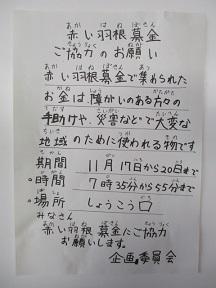 赤い羽根募金
ご協力のお願い
赤い羽根募金で集められた
お金は、障がいのある方々の
手助けや、災害などで大変な
地域のために使われる物です。
期間 11月17日から20日まで
時間 7時35分から55分まで
場所 しょうこう口
みなさん
赤い羽根募金にご協力
お願いします。
企画委員会